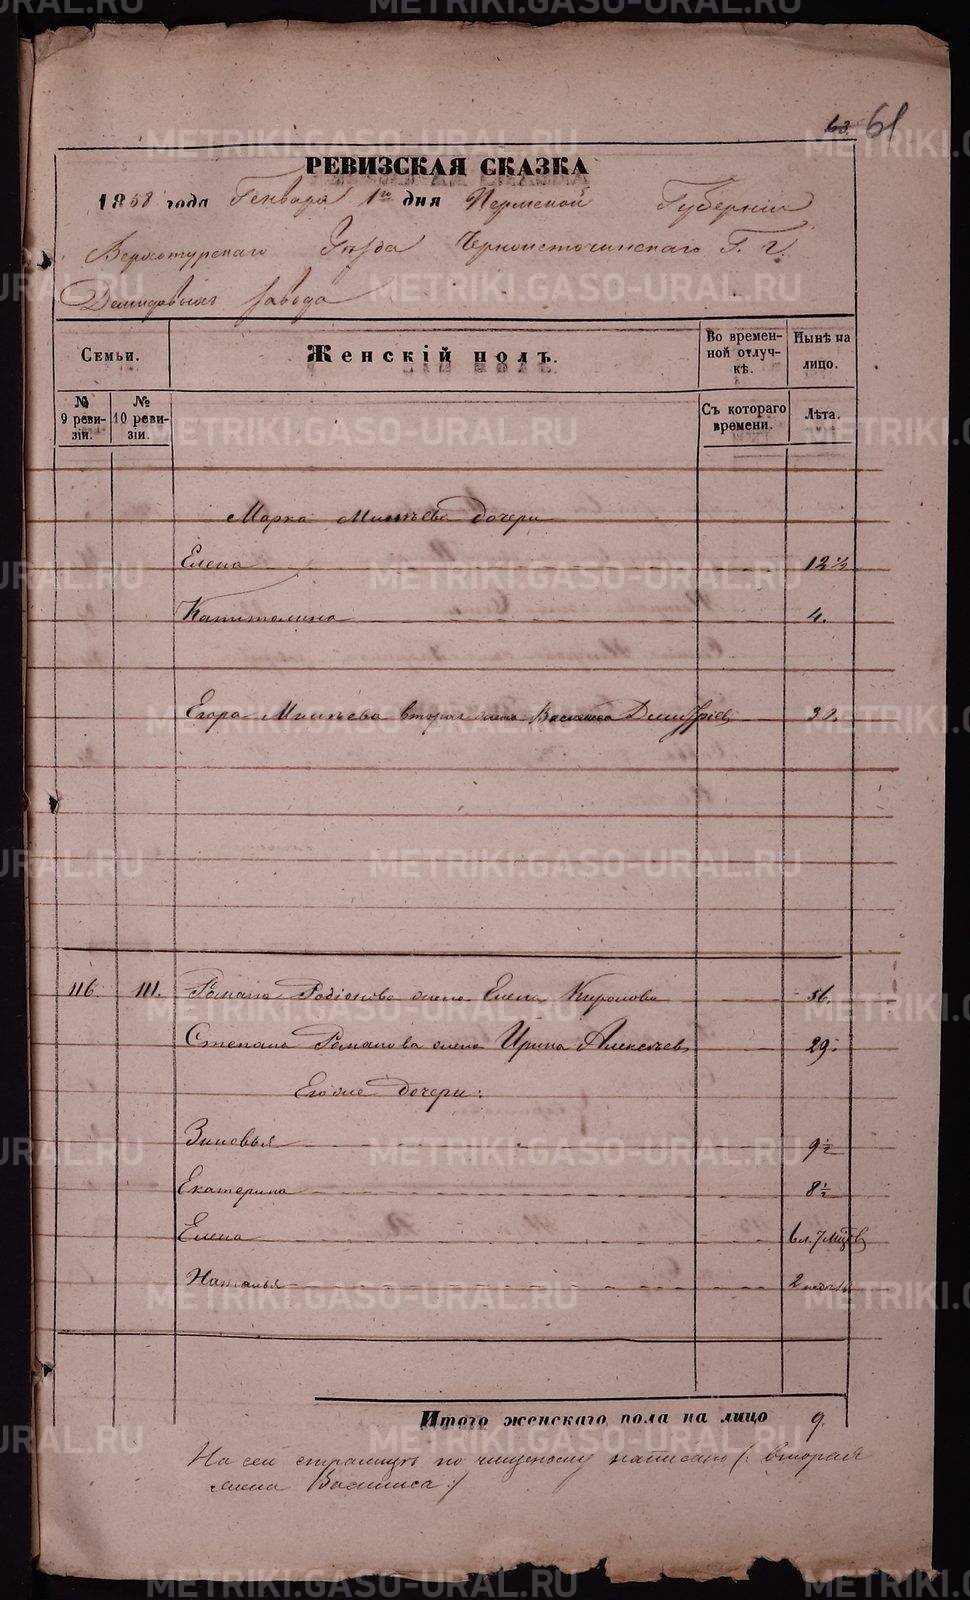 63. 61
РЕВИЗСКАЯ СКАЗКА
1858 года Генваря 1го дня Пермской Губернiи
Верхотурскаго Уѣзда Черноисточинскаго Г. г.
Демидовыхъ завода
Семьи.
Женскiй полъ.
Во времен-
ной отлуч-
кѣ.
Нынѣ на
лицо.
№
9 реви-
зiи.
№
10 реви-
зiи.
Съ котораго
времени.
Лѣта.
Марка дочери
Елена 12 1/2
Капитолина 4.
Егора вторая жена Василиса Дмитрiев 32.
116. 111. Романа Родiонова жена Елена 56.
Степана Романова жена Ирина Алексѣев 29.
Его же дочери:
Зиновья 9 1/2
Екатерина 8 1/2
Елена 6 л. 7 мцов
Наталья 2 недѣль
Итого женскаго пола на лицо 9.
На сей страницѣ по чищеному написано /: вторая
жена Василиса :/
METRIKI.GASO-URAL.RU